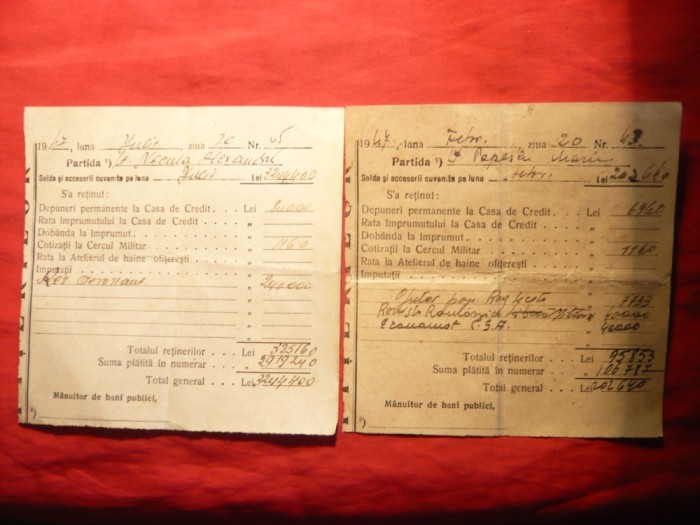 1947, luna Iulie ziua 20 Nr. 45
Partida ²) Lt. Nicula Alexandru
Solda și accesorii cuvenite pe luna Iulie Lei 3244400
S'a reținut:
Depuneri permanente la Casa de Credit . . . Lei 80000
Rata Imprumutului la Casa de Credit . . . „
Dobânda la Imprumut. . . . „
Cotizații la Cercul Militar . . . „ 1160
Rata la Atelierul de haine ofițerești . . . „
Imputații . . . „
240000
Totalul reținerilor . . Lei
Suma plătită în numerar . . „ 2919240
Total general . . Lei 3244400
Mânuitor de bani publici,
³)
1947, luna Febr. ziua 20 Nr. 43
Partida ²) Lt Popescu Marin
Solda și accesorii cuvenite pe luna Febr. Lei 202640
S'a reținut:
Depuneri permanente la Casa de Credit . . . Lei 6960
Rata Imprumutului la Casa de Credit . . . „
Dobânda la Imprumut. . . . „
Cotizații la Cercul Militar . . . „ 1160
Rata la Atelierul de haine ofițerești . . . „
Imputații . . . „
7733
Revista România 40000
Economat C.S.A. 40000
Totalul reținerilor . . Lei 95853
Suma plătită în numerar . . „ 106787
Total general . . Lei 202640
Mânuitor de bani publici,
³)